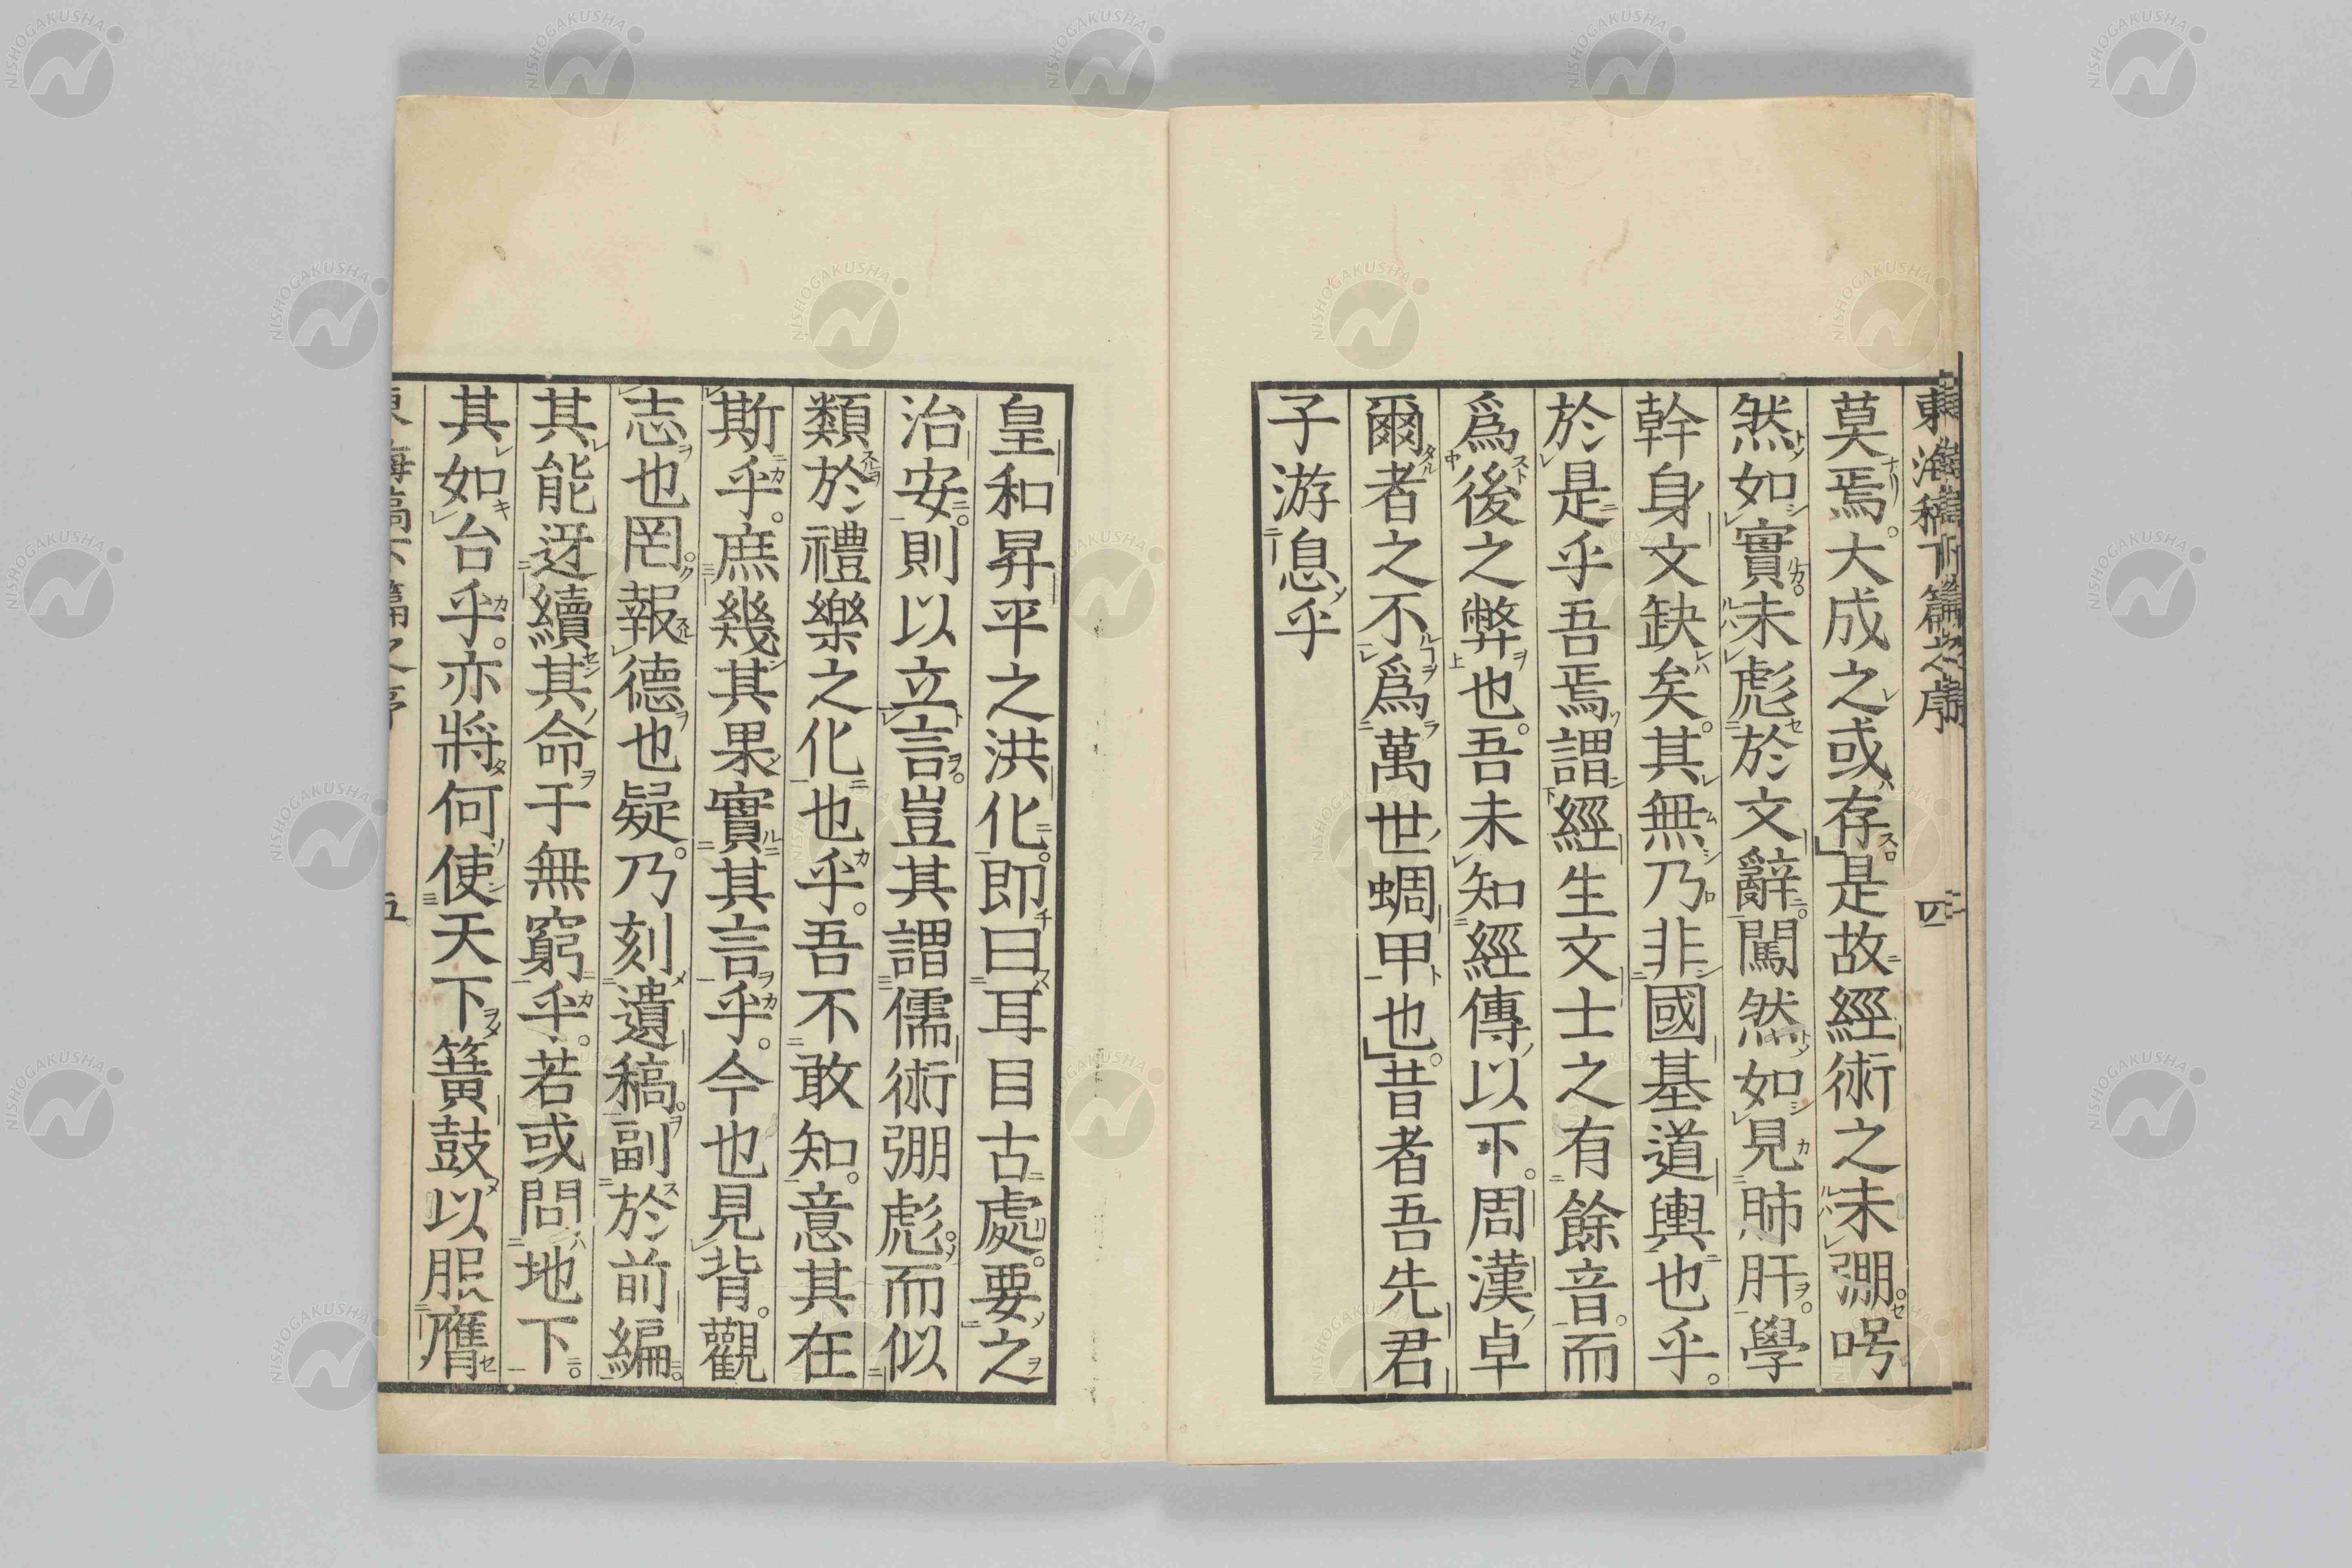 東海稿下篇之序 四
莫焉。大成之或存」是故經術之未弸咢
然如實。未彪於文辭。闖然如見肺肝。學
幹身文缺矣。其無乃非國基道輿也乎。
於是乎吾焉謂經生文士之有餘音。而
爲後之弊也。吾未知經傳以下。周漢卓
爾者之不爲萬世蜩甲也」昔者吾先君
子游息乎
皇和昇平之洪化。即曰耳目古處。要之
治安。則以立言。豈其謂儒術弸彪。而似
類於禮樂之化也乎。吾不敢知。意其在
斯乎。庶幾其果實其言乎。今也見背。觀
志也罔。報德也疑。乃刻遺稿。副於前編。
其能迓續其命于無窮乎。若或問地下。
其如台乎。亦將何使天下簧鼓以服膺
東海稿下篇之序 五
NISHOGAKUSHA